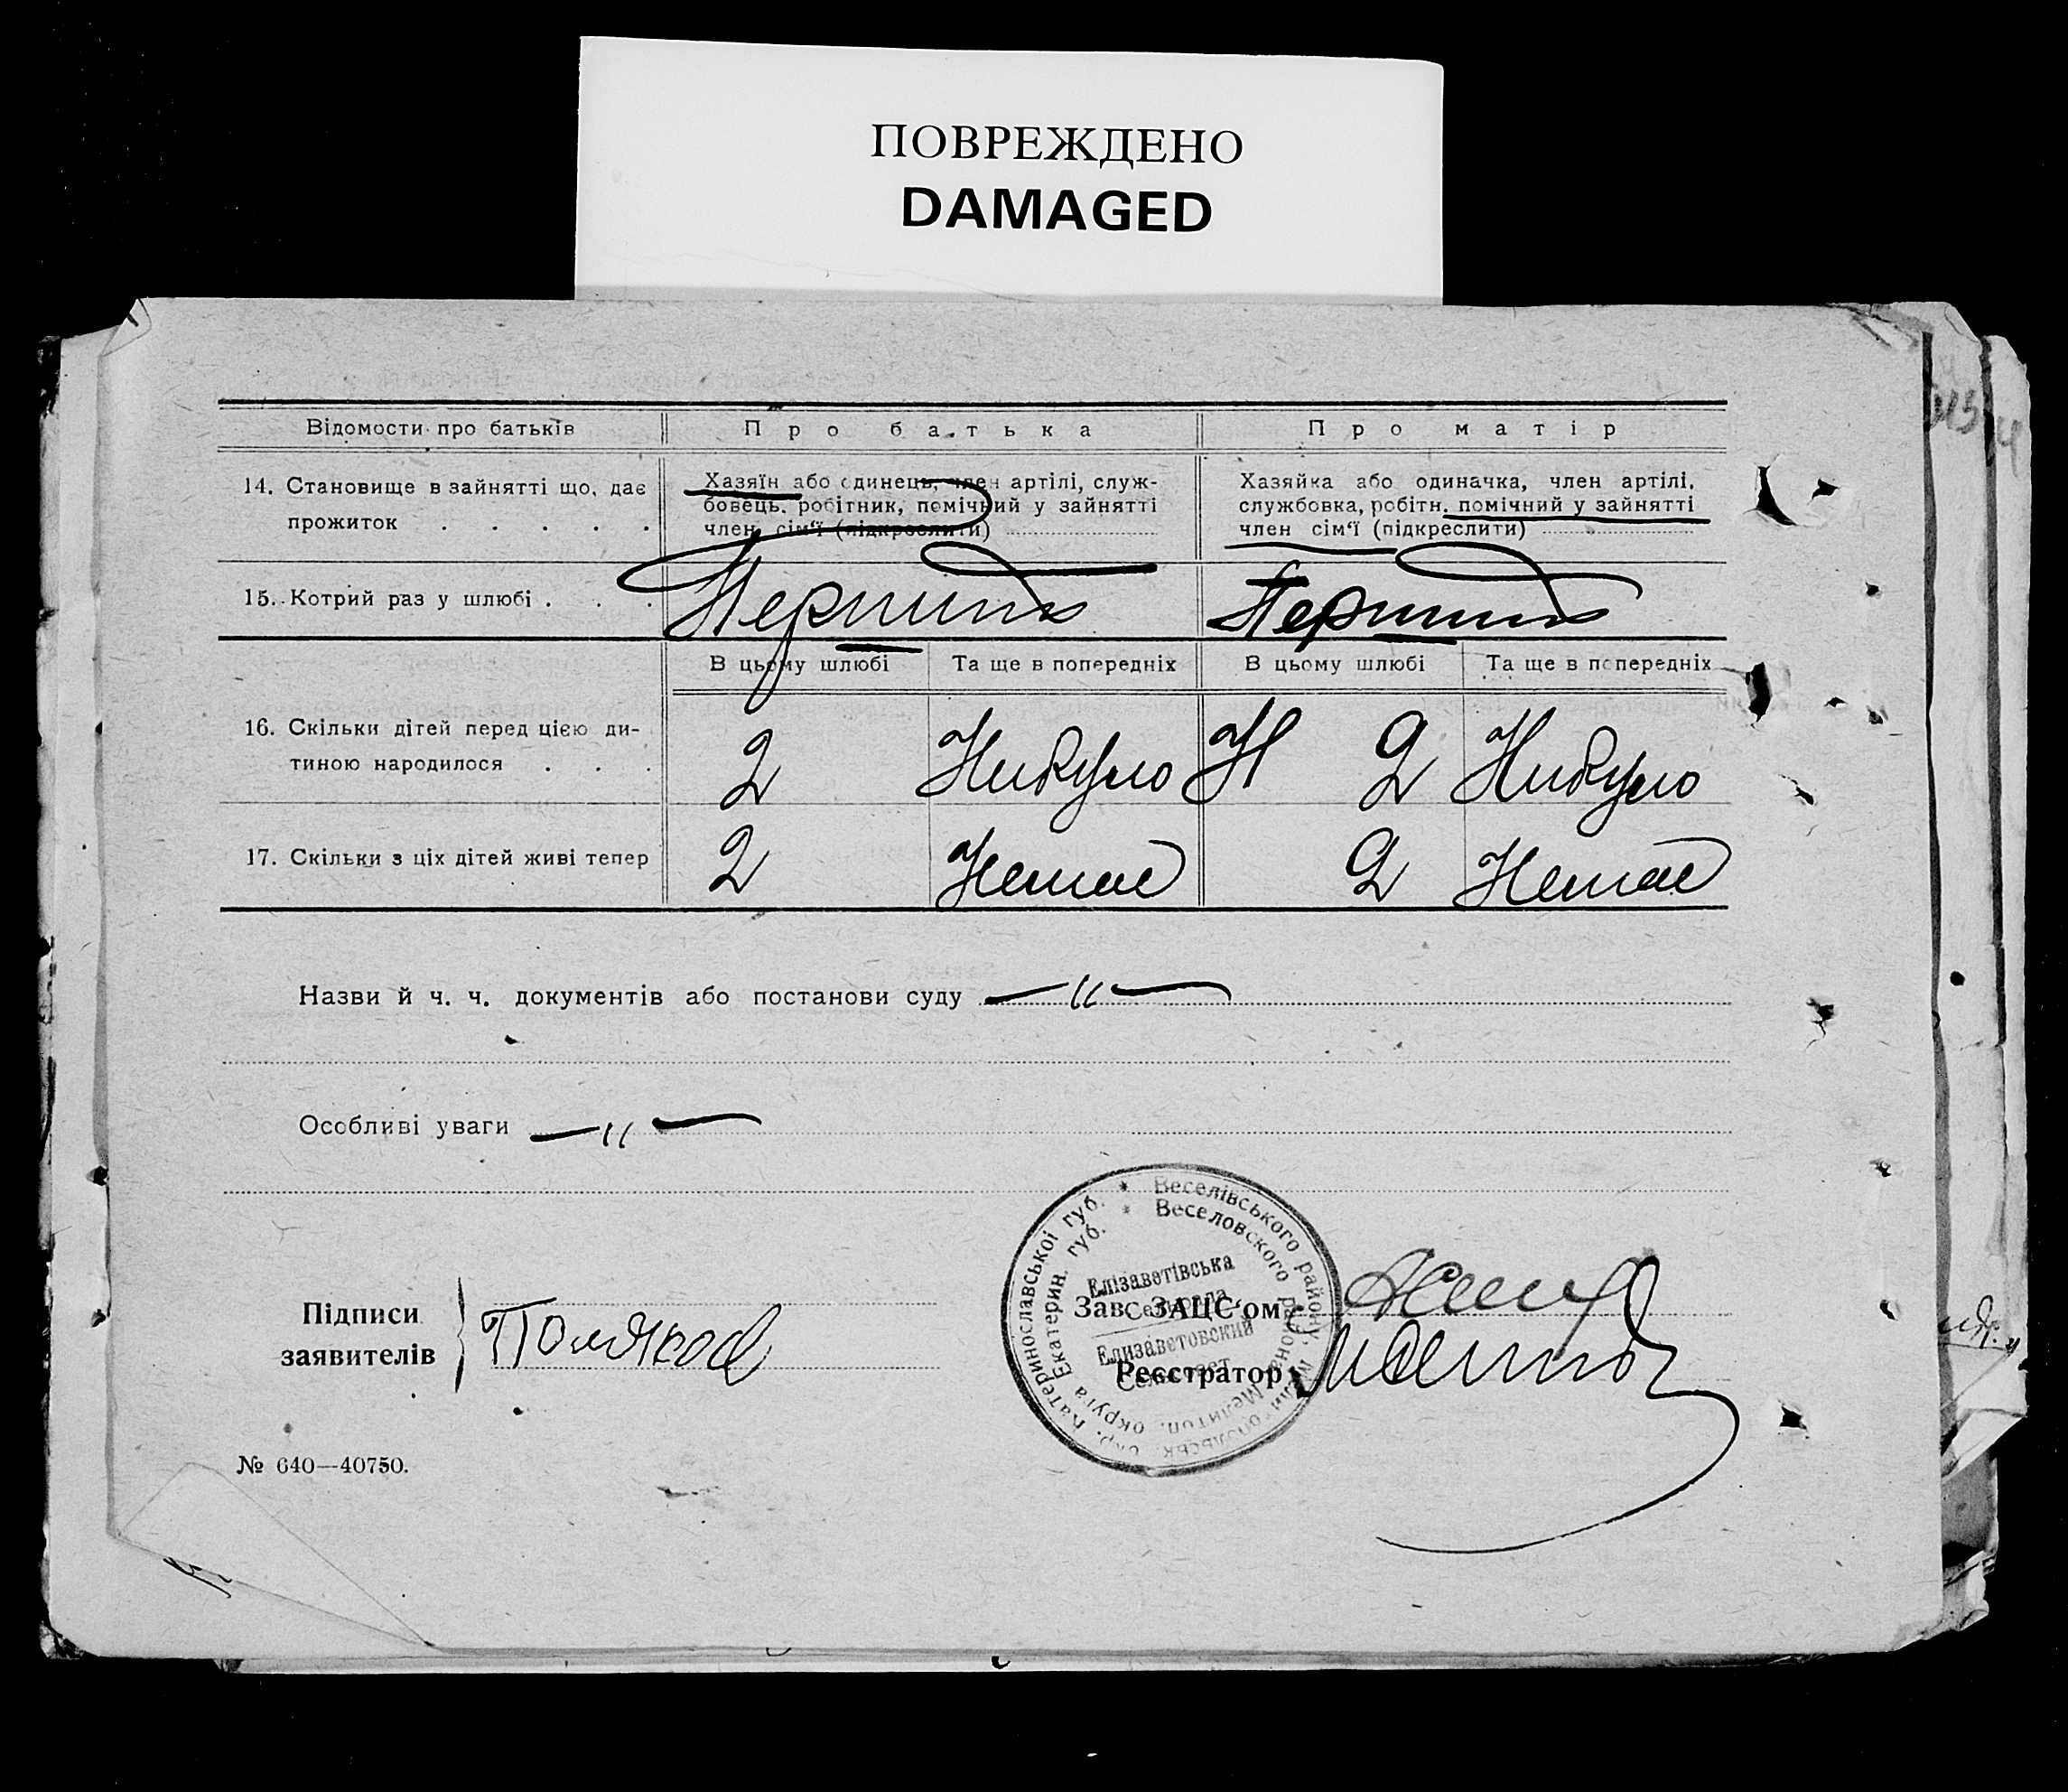 ПОВРЕЖДЕНО
DAMAGED
Відомости про батьків
Про батька
Про матір
14. Становище в зайнятті що, дає прожиток . . . . .
Хазяїн або одинець, член артілі, служ-
бовець, робітник, помічний у зайнятті
член сім'ї (підкреслити)
Хазяйка або одиначка, член артілі,
службовка, робітн. помічний у зайнятті
член сім'ї (підкреслити)
15. Котрий раз у шлюбі . . .
Перший
Перший
В цьому шлюбі
Та ще в попередніх
В цьому шлюбі
Та ще в попередніх
16. Скільки дітей перед цією ди-
тиною народилося . . .
2
Нибуло
Н 2
Нибуло
17. Скільки з ціх дітей живі тепер
2
Немає
2
Немає
Назви й ч. ч. документів або постанови суду —〃—
Особливі уваги —〃—
Підписи
заявителів
Поляков
Зав. ЗАЦС'ом
Реєстратор
Веселівського району, Мелітопольськ. окр. Катеринославської губ.
Веселовского района Мелитоп. округа Екатерин. губ.
Елізаветівська
Сельрада
Елизаветовский
Сельсовет
№ 640—40750.